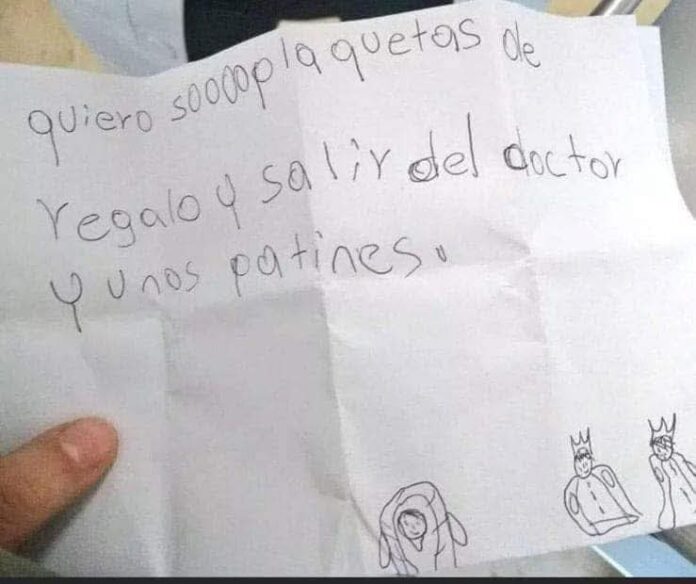 quiero 50000plaquetas de
regalo y salir del doctor
y unos patines.